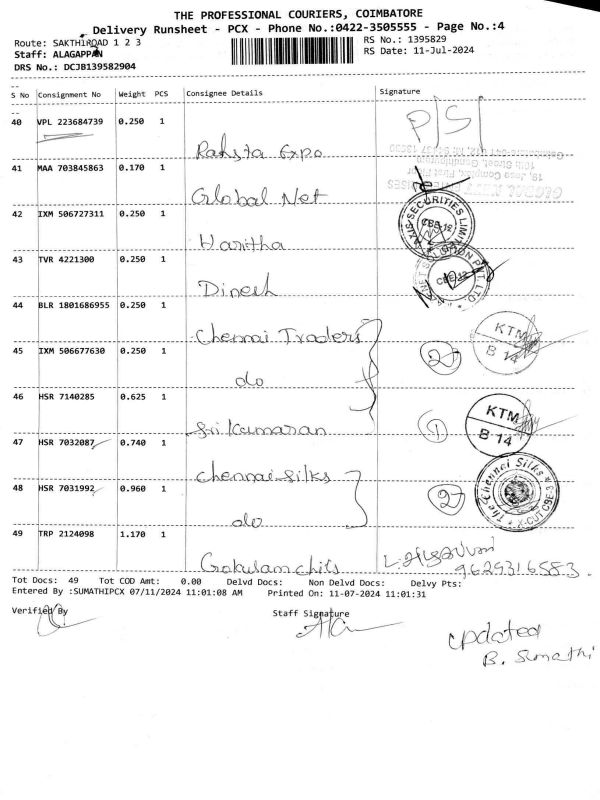 THE PROFESSIONAL COURIERS, COIMBATORE
Delivery Runsheet - PCX - Phone No.:0422-3505555 - Page No.:4
Route: SAKTHIROAD 1 2 3
RS No.: 1395829
Staff: ALAGAPPAN
RS Date: 11-Jul-2024
DRS No.: DCJB139582904
S No Consignment No Weight PCS Consignee Details Signature
40 VPL 223684739 0.250 1
P/S/
Raksta Expo
41 MAA 703845863 0.170 1
Global Net
42 IXM 506727311 0.250 1
AXIS-SECURITIES LIMI
CBE-12
Haritha
43 TVR 4221300 0.250 1
NET SOLUTION PVT LTD
CBE-12
Dinesh
44 BLR 1801686955 0.250 1
Chennai Traders
KTM
B 14
45 IXM 506677630 0.250 1
2
do
46 HSR 7140285 0.625 1
Sri Kumaran
1
KTM
B 14
47 HSR 7032087 0.740 1
Chennai silks
The Chennai Silks
48 HSR 7031992 0.960 1
2
do
49 TRP 2124098 1.170 1
Gokulam chits
9629316583.
Tot Docs: 49 Tot COD Amt: 0.00 Delvd Docs: Non Delvd Docs: Delvy Pts:
Entered By :SUMATHIPCX 07/11/2024 11:01:08 AM Printed On: 11-07-2024 11:01:31
Verified By
Staff Signature
updated
B. Sumathi